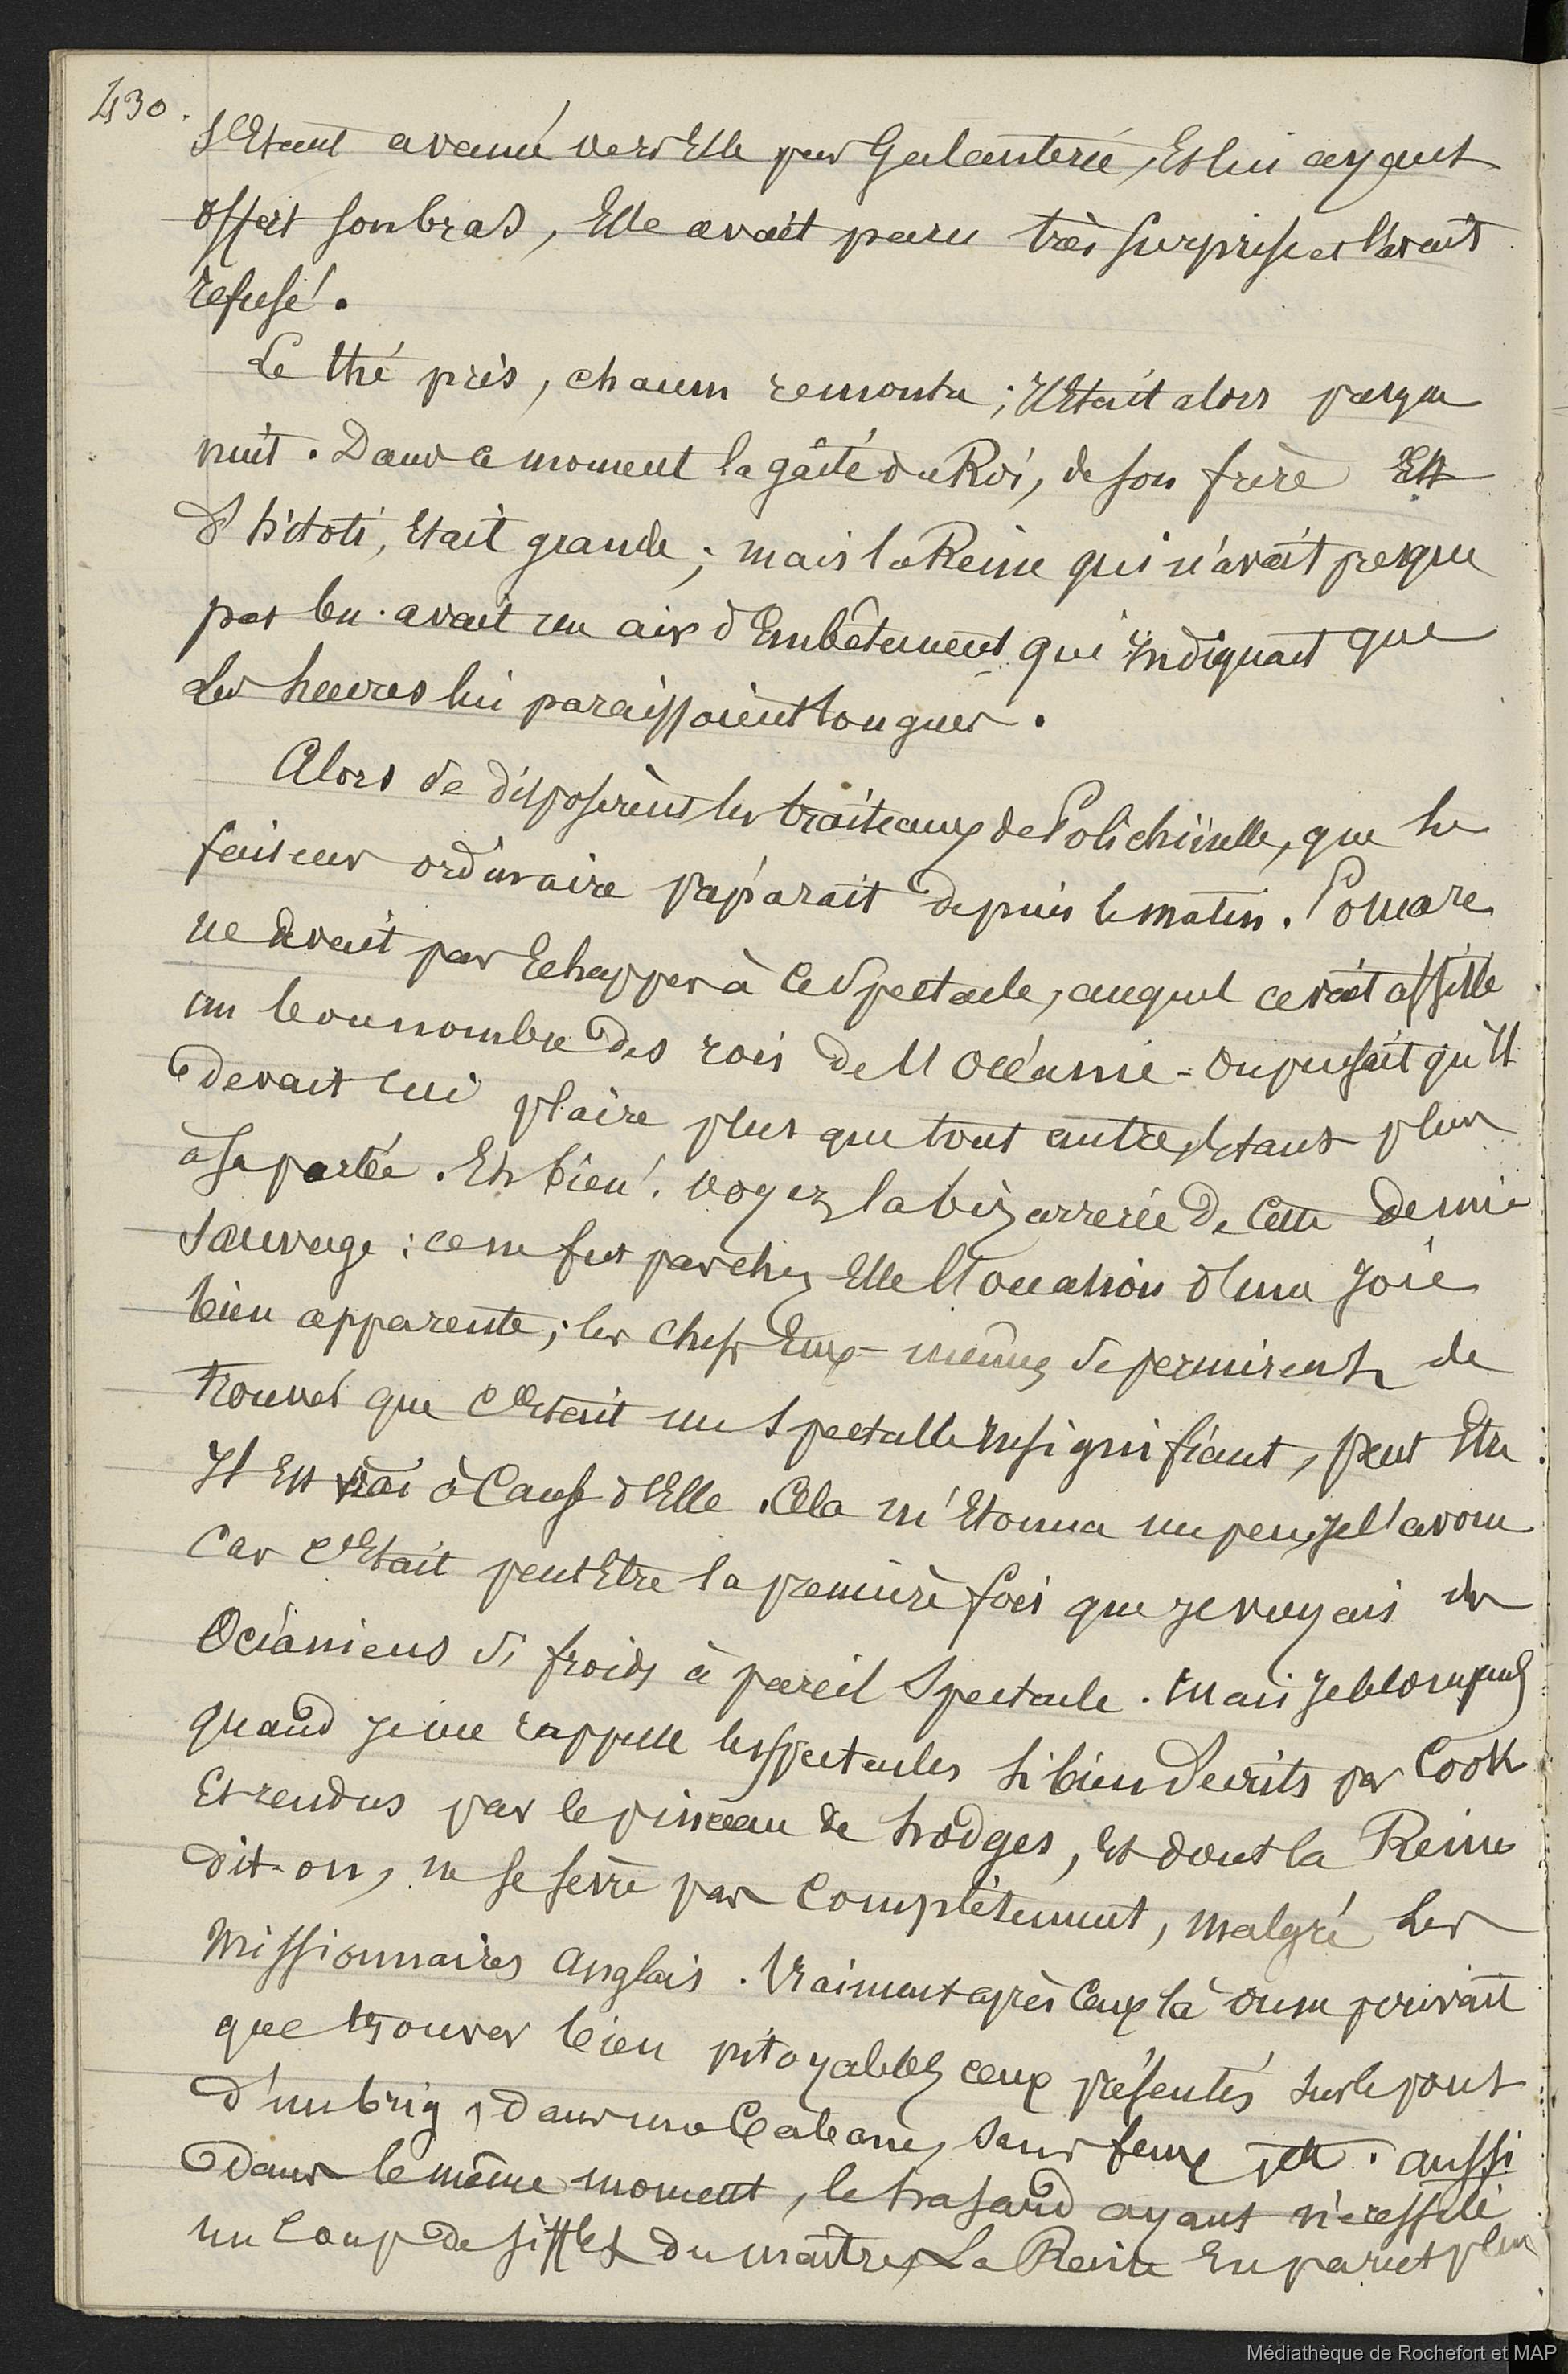 430.
s'Etant avancé vers Elle par Galanterie, Et lui ayant
offert son bras, Elle avait paru très surprise et l'avait
refusé.
Le thé pris, chacun remonta ; Il Etait alors presque
nuit. Dans ce moment la gaîté du Roi, de son frère Et
d'hitoti, Etait grande ; mais la Reine qui n'avait presque
pas bu. avait un air d'Embêtement qui Indiquait que
les heures lui paraissaient longues.
Alors se disposèrent les traiteaux de Polichinelle, que le
faiseur ordinaire préparait depuis le matin. Pomare
ne devait pas Echapper à ce Spectacle, auquel avait assisté
un bon nombre des rois de l'Océanie - On pensait qu'Il
devait lui plaire plus que tout autre, Etant plus
à sa portée. Eh bien ! voyez la bizarrerie de cette demie
Sauvage : ce ne fut pas chez Elle l'occasion d'une Joie
bien apparente ; les chefs Eux-mêmes se permirent de
trouver que c'Etait un Spectacle Insignifiant, peut Etre :
Il Est vrai à Cause d'Elle. Cela m'Etonna un peu, Je l'avoue
Car c'Etait peut Etre la première fois que Je voyais des
Océaniens si froids à pareil Spectacle. Mais Je le comprends
quand Je me rappelle les spectacles si bien décrits par Cook
Et rendus par le pinceau de hodges, Et dont la Reine
dit-on, ne se sèvre pas Complètement, malgré les
Missionnaires Anglais. Vraiment après Ceux là On ne pouvait
que trouver bien pitoyables ceux présentés sur le pont
d'un brig, dans une Cabane, sans feux Etc. aussi
Dans le même moment, le hasard ayant nécessité
un Coup de sifflet du maître, La Reine En parut plus
Médiathèque de Rochefort et MAP